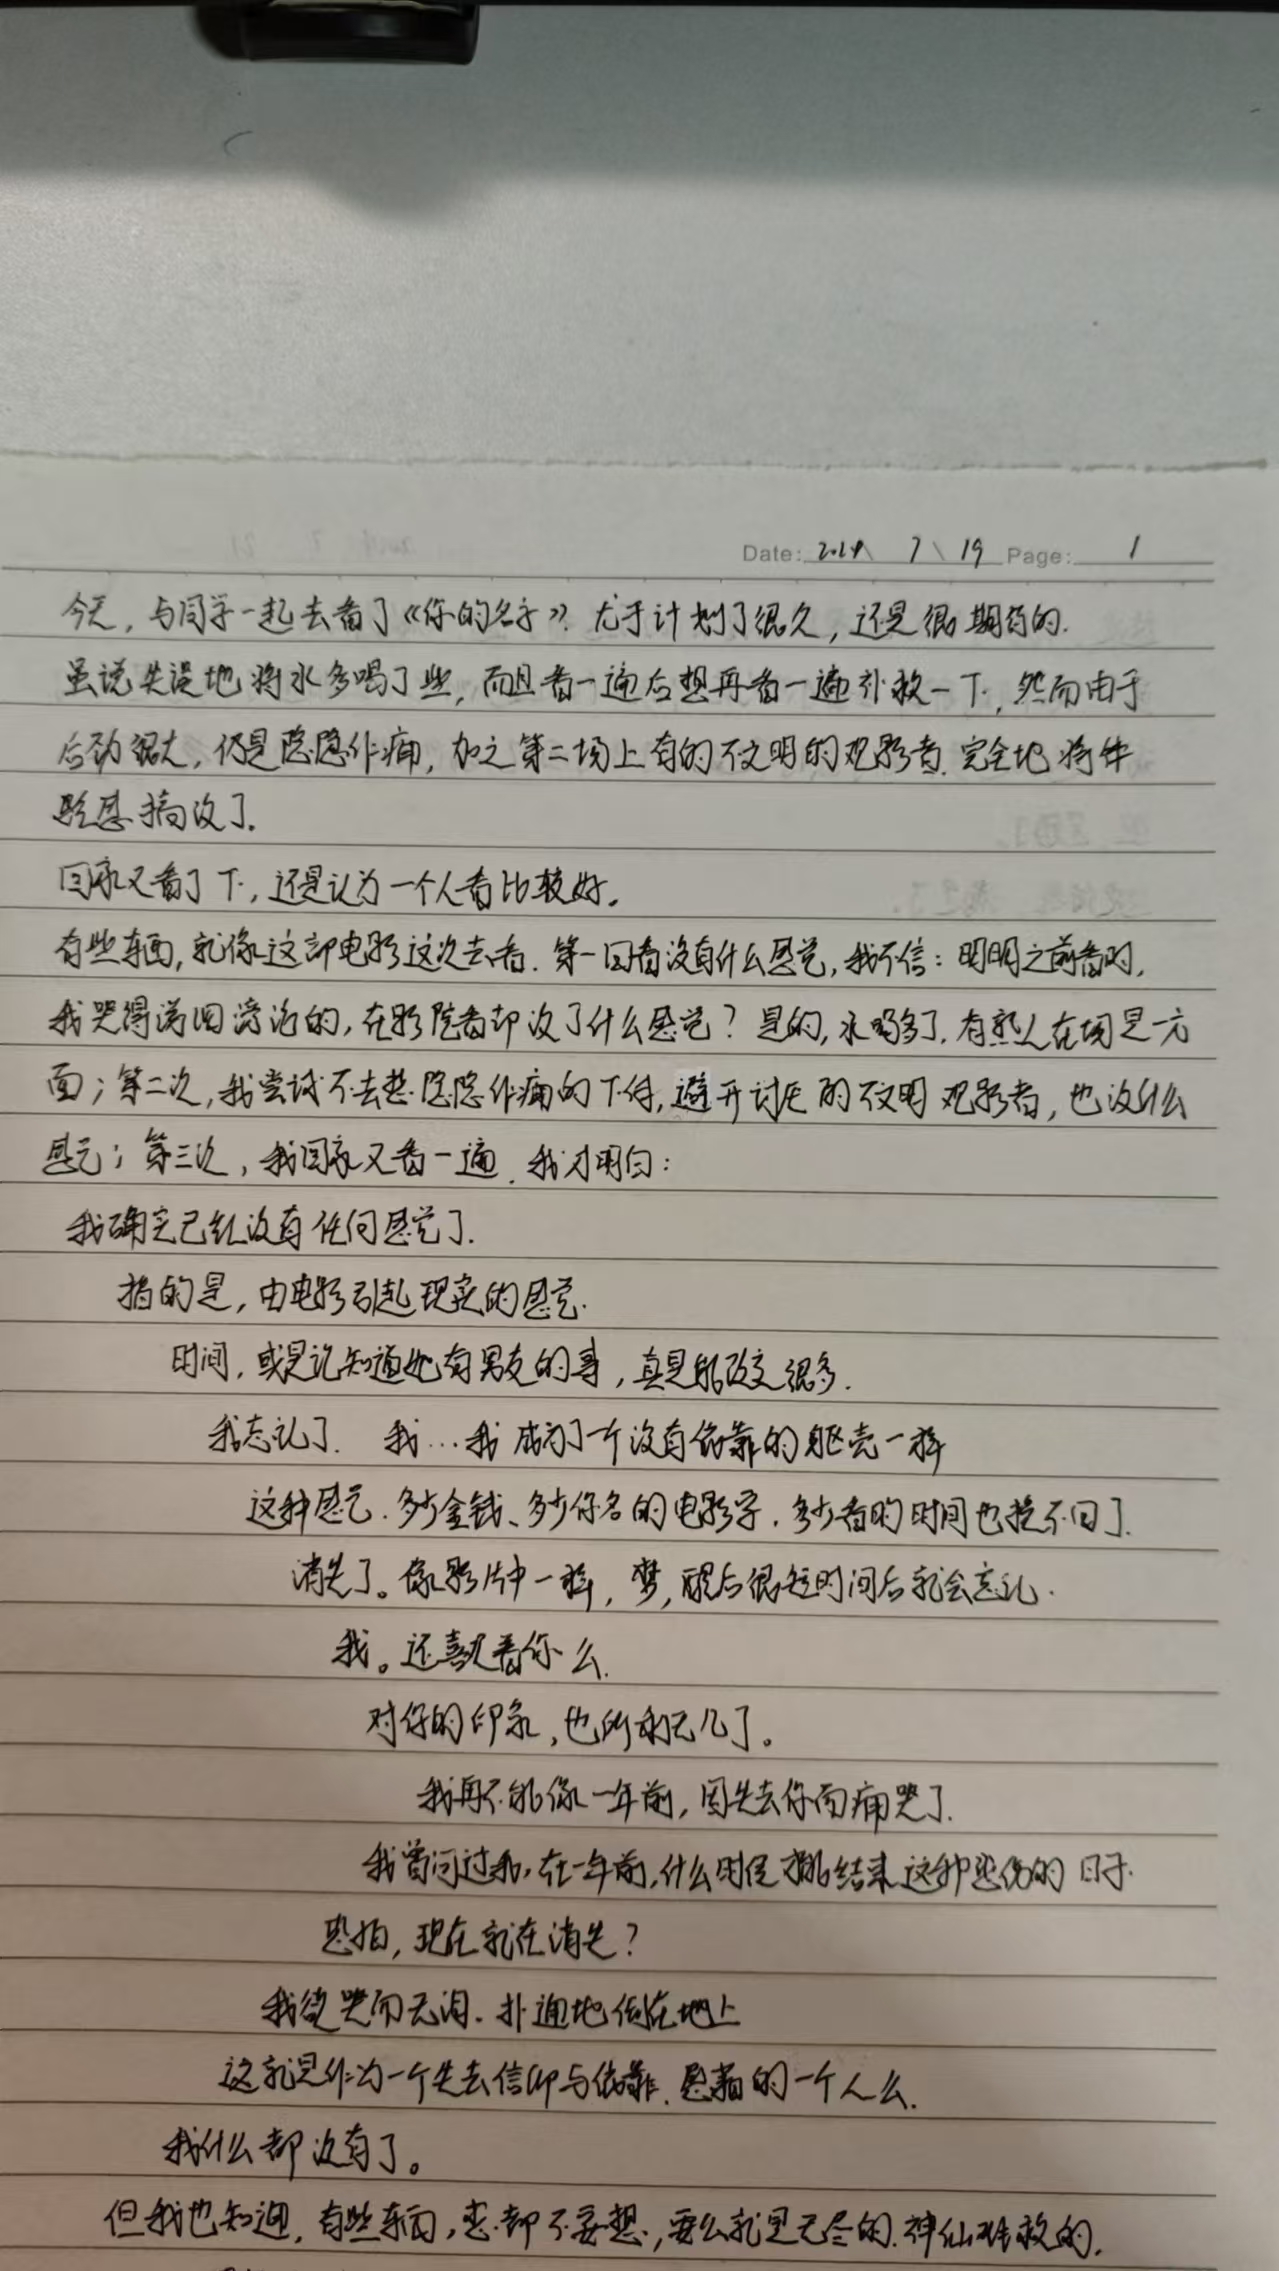 Date: 2024 \ 7 \ 19 Page: 1
今天，与同学一起去看了《你的名字》. 尤于计划了很久，还是很期待的.
虽说失误地将水多喝了些，而且看一遍后想再看一遍补救一下，然而由于
后劲很大，仍是隐隐作痛，加之第二场上有的不文明的观影者. 完全地将
影感搞没了.
回家又看了下，还是认为一个人看比较好.
有些东西，就像这部电影这次去看. 第一回看没有什么感觉，我不信：明明之前看时，
我哭得涕泪滂沱的，在影院看却没了什么感觉？是的，水喝多了. 有熟人在场是一方
面；第二次，我尝试不去想隐隐作痛的下体，避开讨厌的不文明观影者，也没什么
感觉；第三次，我回家又看一遍. 我才明白：
我确定已经没有任何感觉了.
指的是，由电影引起现实的感觉.
时间，或是说知道她有男友的事，真是能改变很多.
我忘记了. 我…我成为了一个没有依靠的躯壳一样
这种感觉. 多少金钱、多少你名的电影字. 多少看的时间也换不回了.
消失了。像影片中一样，梦，醒后很短时间后就会忘记.
我。还喜欢着你么.
对你的印象，也所剩无几了。
我再不能像一年前，因失去你而痛哭了.
我曾问过我，在一年前，什么时候才能结束这种悲伤的日子.
恐怕，现在就在消失？
我欲哭而无泪. 扑通地倒在地上
这就是作为一个失去信仰与依靠. 的一个人么.
我什么都没有了。
但我也知道，有些东西，都不要想，要么就是无尽的. 神仙难救的.